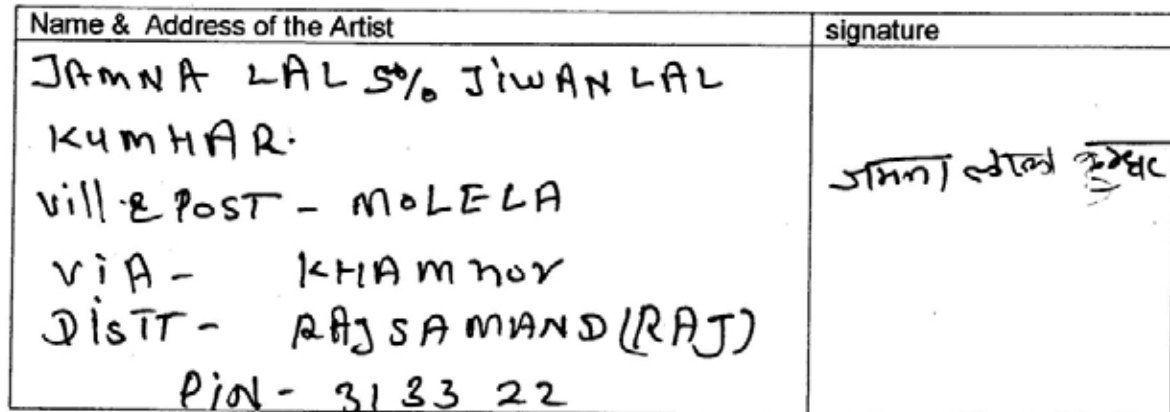 Name & Address of the Artist
signature
JAMNA LAL S/o JIWAN LAL
KUMHAR.
जमना लाल कुम्हार
Vill & POST - MOLELA
ViA - KHAMNOR
DISTT - RAJSAMAND (RAJ)
PiN - 313322